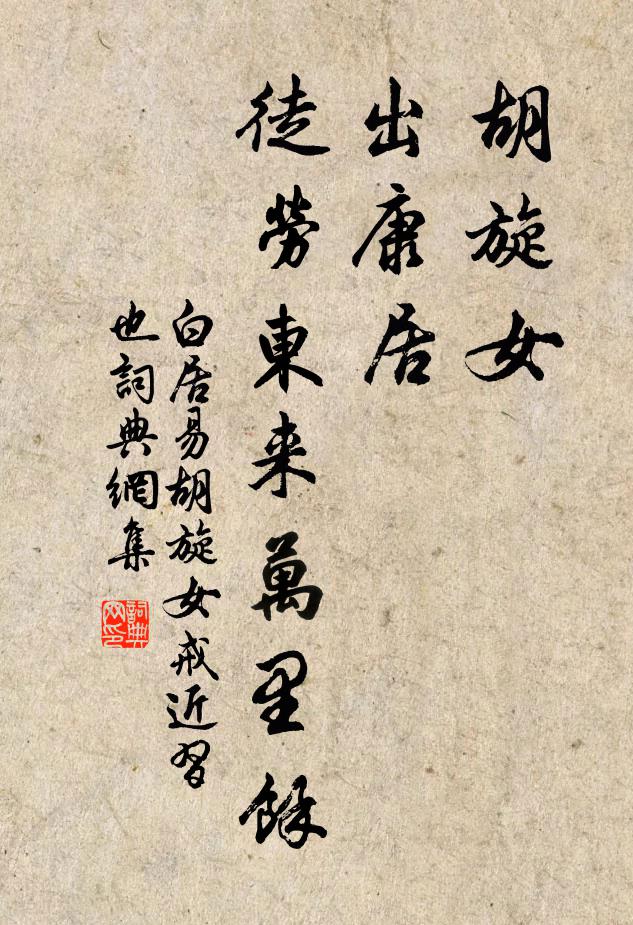 胡旋女
出康居
徒勞東来萬里餘
白居易胡旋女戒近習
也詞典網集
詞典
网印